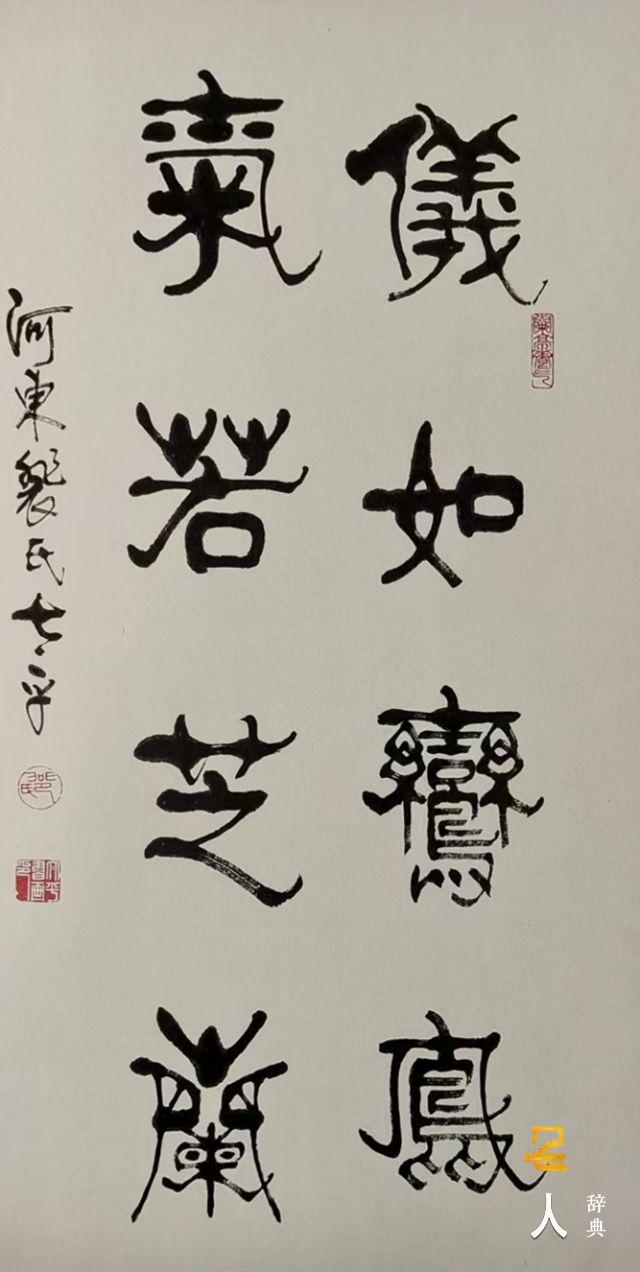 儀如鸞鳳
氣若芝蘭
河東裴氏
人
辞典